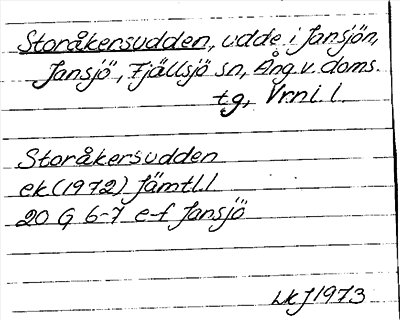 Storåkersudden, udde i Jansjön,
Jansjö, Fjällsjö sn, Ång. v. doms.
tg, Vrnl. l.
Storåkersudden
ek (1972) Jämtl. l
20 G 6-7 e-f Jansjö
LKJ 1973